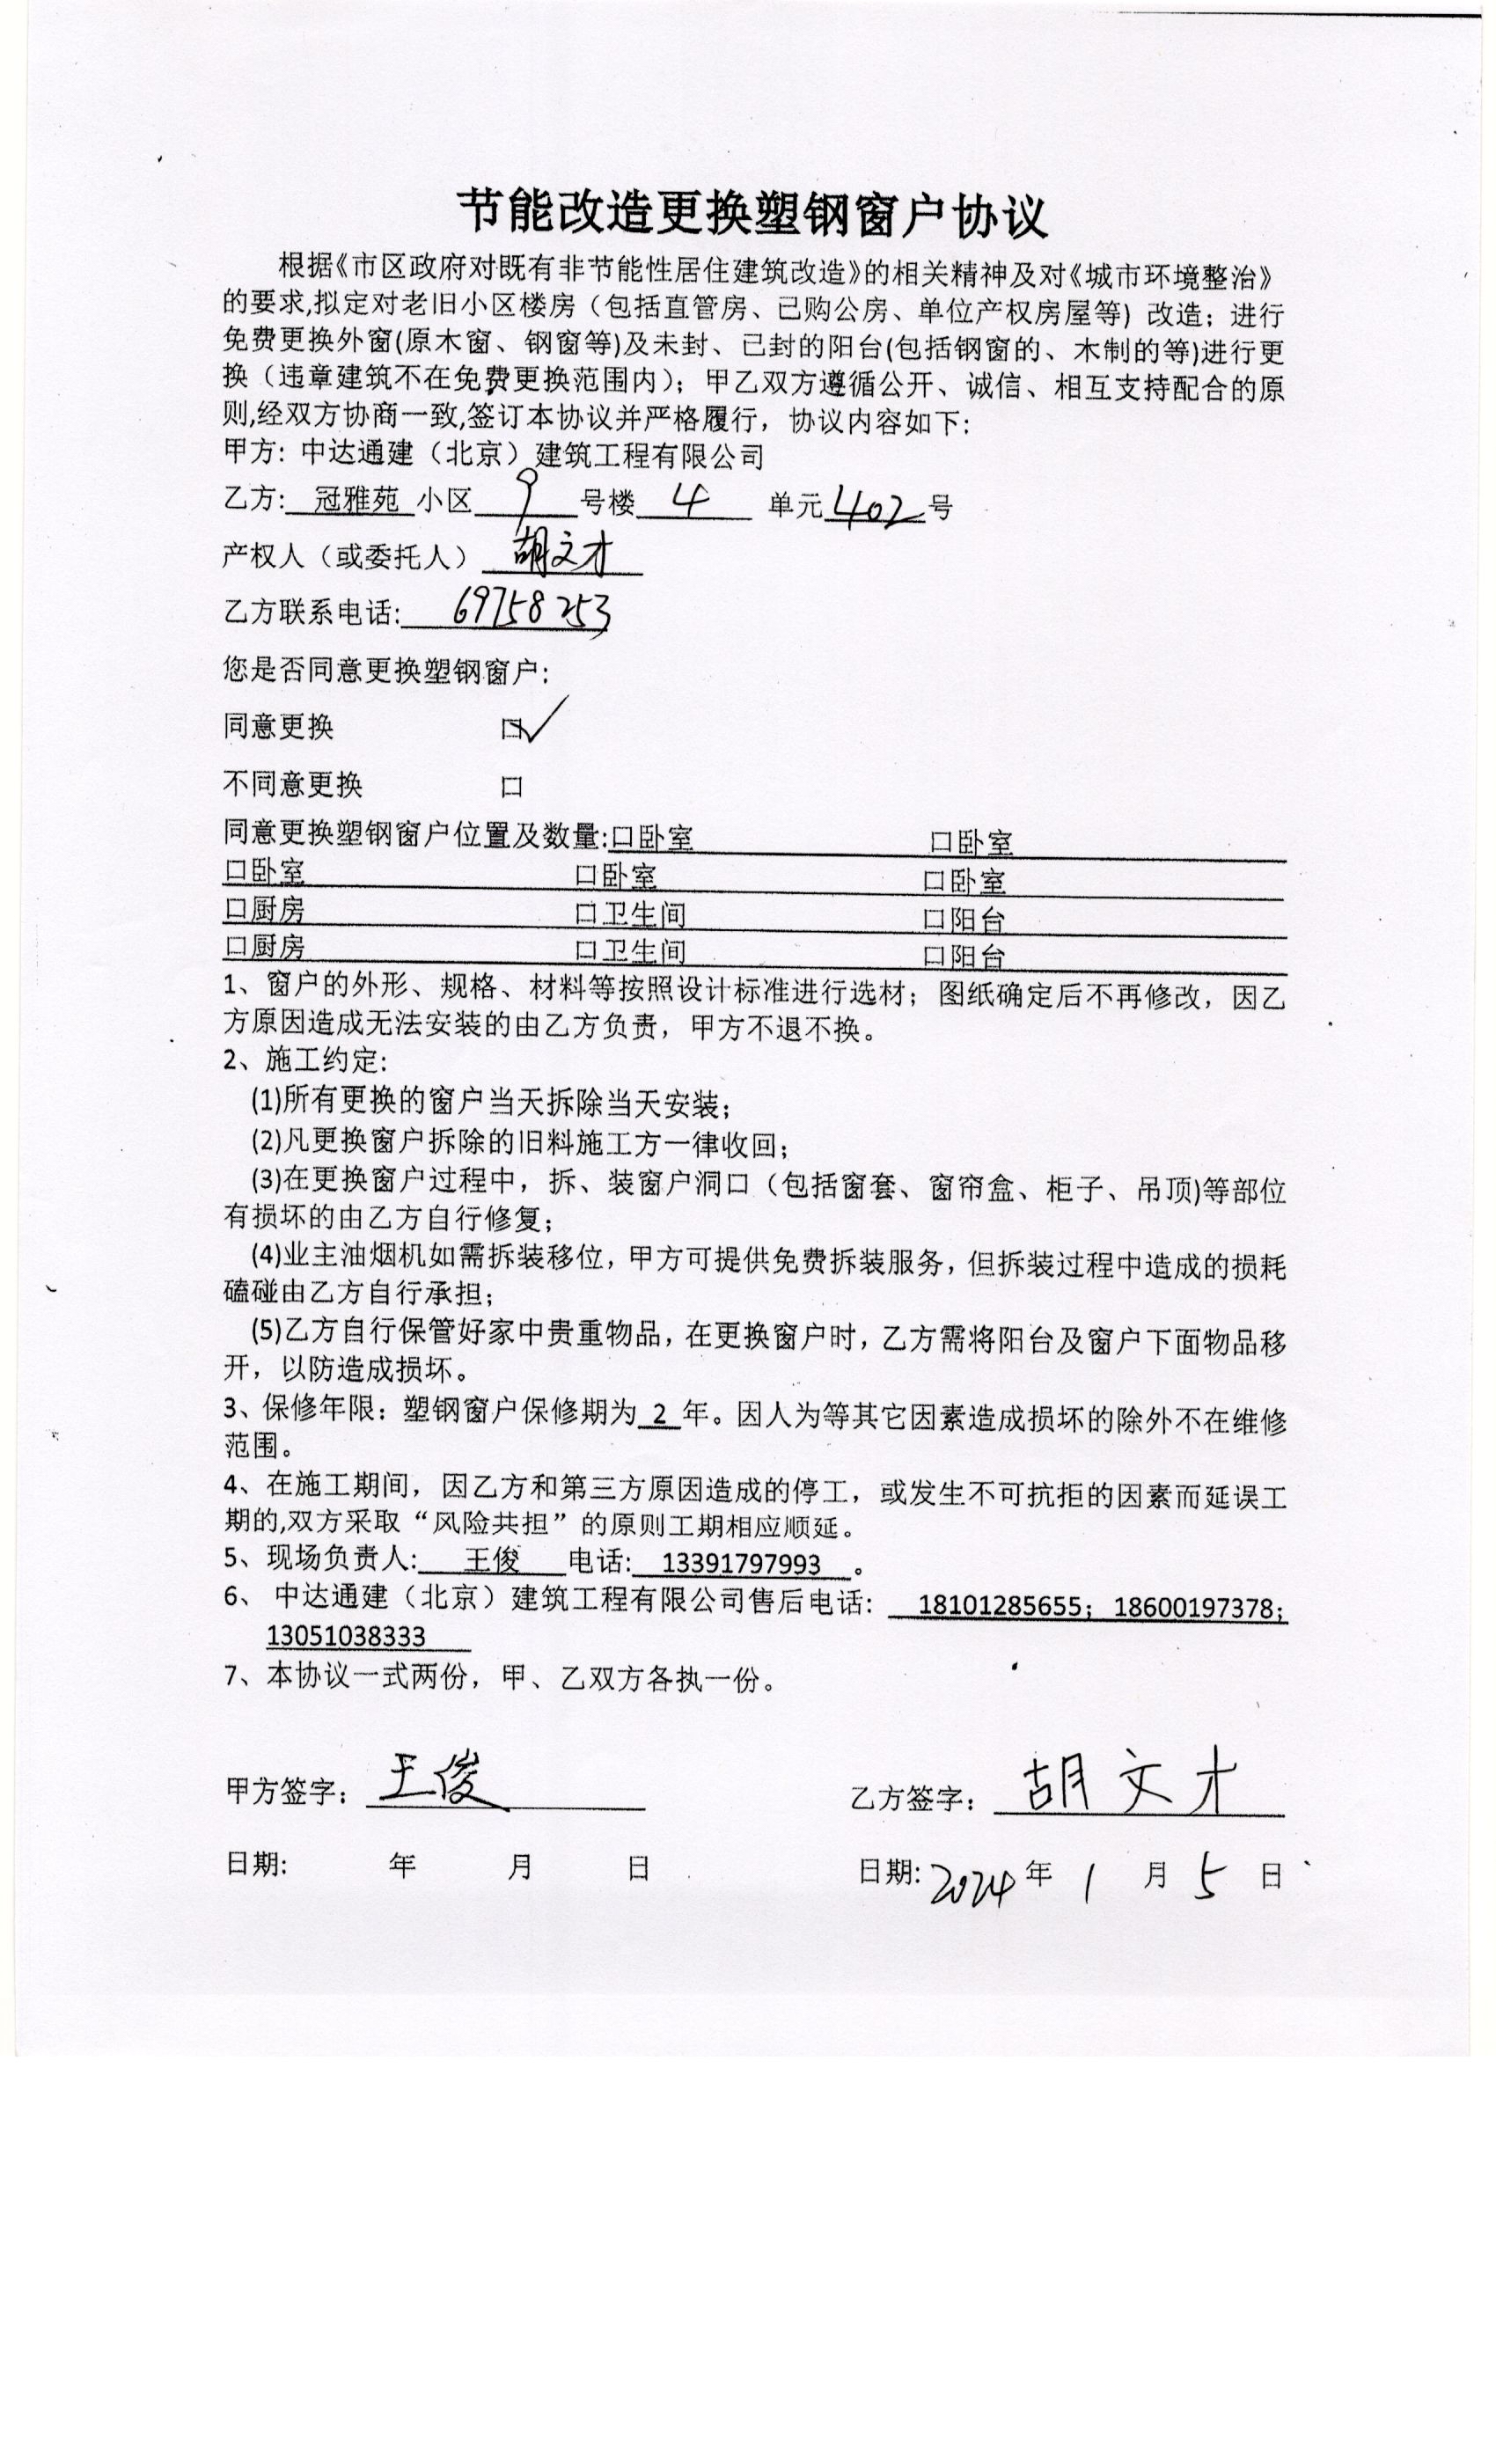 节能改造更换塑钢窗户协议
根据《市区政府对既有非节能性居住建筑改造》的相关精神及对《城市环境整治》
的要求,拟定对老旧小区楼房（包括直管房、已购公房、单位产权房屋等）改造；进行
免费更换外窗(原木窗、钢窗等)及未封、已封的阳台(包括钢窗的、木制的等)进行更
换（违章建筑不在免费更换范围内）；甲乙双方遵循公开、诚信、相互支持配合的原
则,经双方协商一致,签订本协议并严格履行，协议内容如下：
甲方：中达通建（北京）建筑工程有限公司
乙方: 冠雅苑 小区 9 号楼 4 单元 402 号
产权人（或委托人） 胡文才
乙方联系电话: 69758253
您是否同意更换塑钢窗户：
同意更换 口✓
不同意更换 口
同意更换塑钢窗户位置及数量:口卧室 口卧室
口卧室 口卧室 口卧室
口厨房 口卫生间 口阳台
口厨房 口卫生间 口阳台
1、窗户的外形、规格、材料等按照设计标准进行选材；图纸确定后不再修改，因乙
方原因造成无法安装的由乙方负责，甲方不退不换。
2、施工约定：
(1)所有更换的窗户当天拆除当天安装；
(2)凡更换窗户拆除的旧料施工方一律收回；
(3)在更换窗户过程中，拆、装窗户洞口（包括窗套、窗帘盒、柜子、吊顶)等部位
有损坏的由乙方自行修复；
(4)业主油烟机如需拆装移位，甲方可提供免费拆装服务，但拆装过程中造成的损耗
磕碰由乙方自行承担；
(5)乙方自行保管好家中贵重物品，在更换窗户时，乙方需将阳台及窗户下面物品移
开，以防造成损坏。
3、保修年限：塑钢窗户保修期为 2 年。因人为等其它因素造成损坏的除外不在维修
范围。
4、在施工期间，因乙方和第三方原因造成的停工，或发生不可抗拒的因素而延误工
期的,双方采取“风险共担”的原则工期相应顺延。
5、现场负责人: 王俊 电话: 13391797993 。
6、 中达通建（北京）建筑工程有限公司售后电话: 18101285655；18600197378；
13051038333
7、本协议一式两份，甲、乙双方各执一份。
甲方签字： 王俊 乙方签字： 胡文才
日期: 年 月 日 日期: 2024 年 1 月 5 日